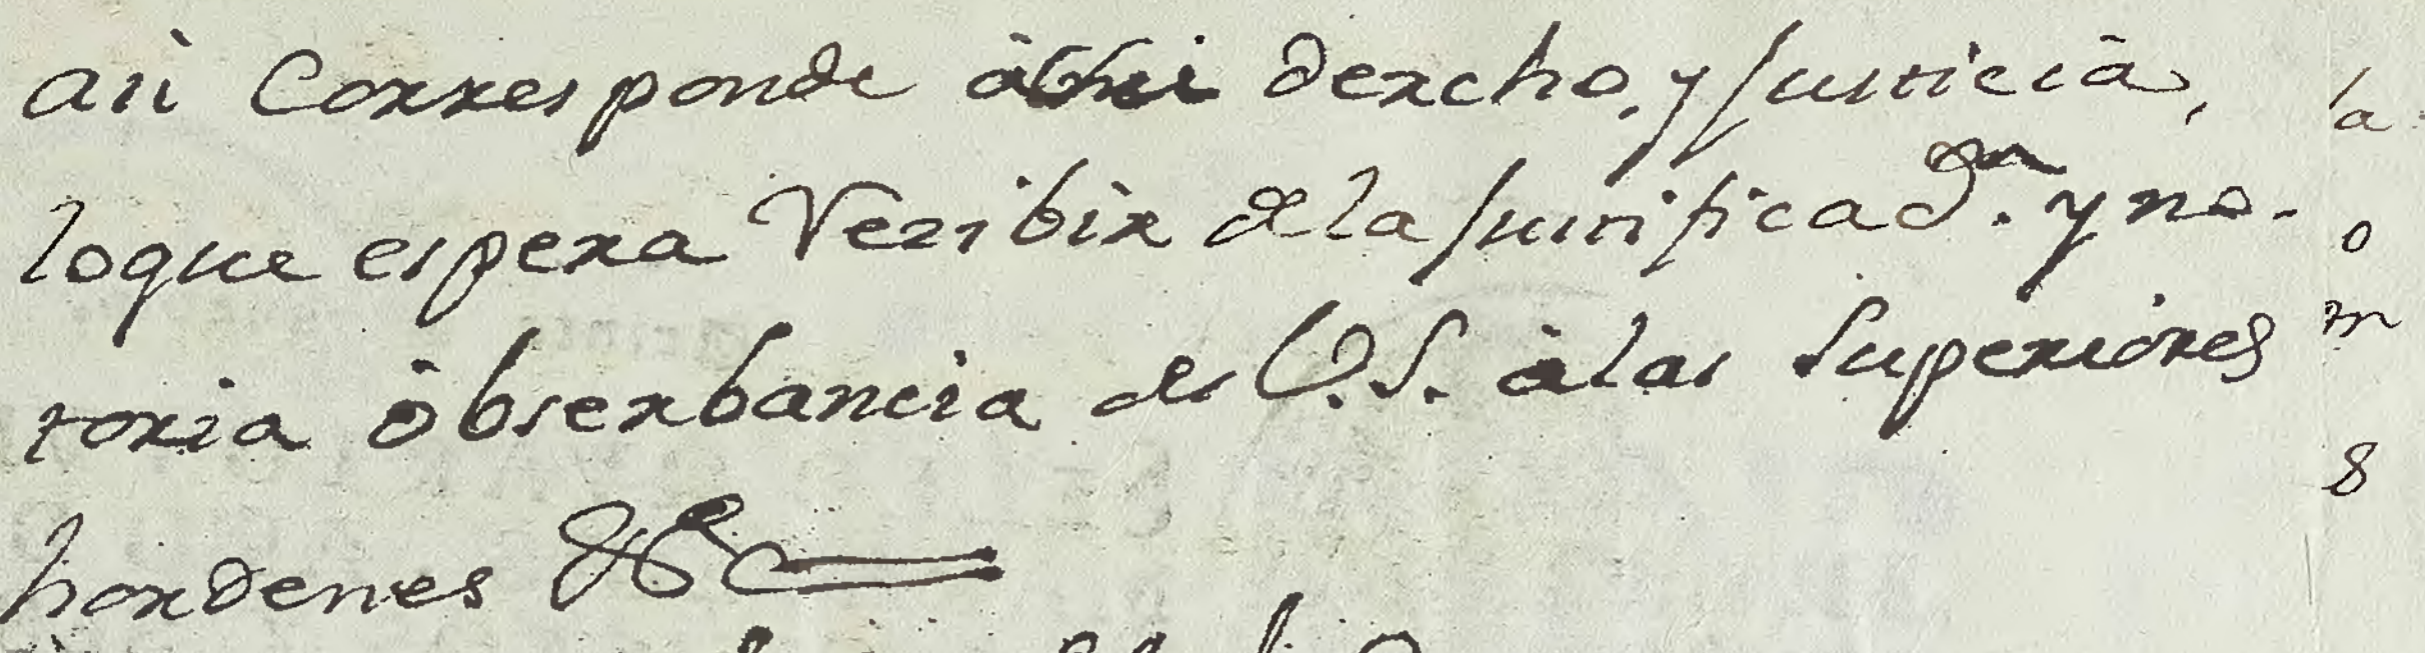 asi corresponde à mi derecho, y Justicia,
loque espera Rezibir de la Justificad.ⁿ y no-
toria òbserbancia de V.S. àlas Superiores
hordenes &c
la
o
m
8